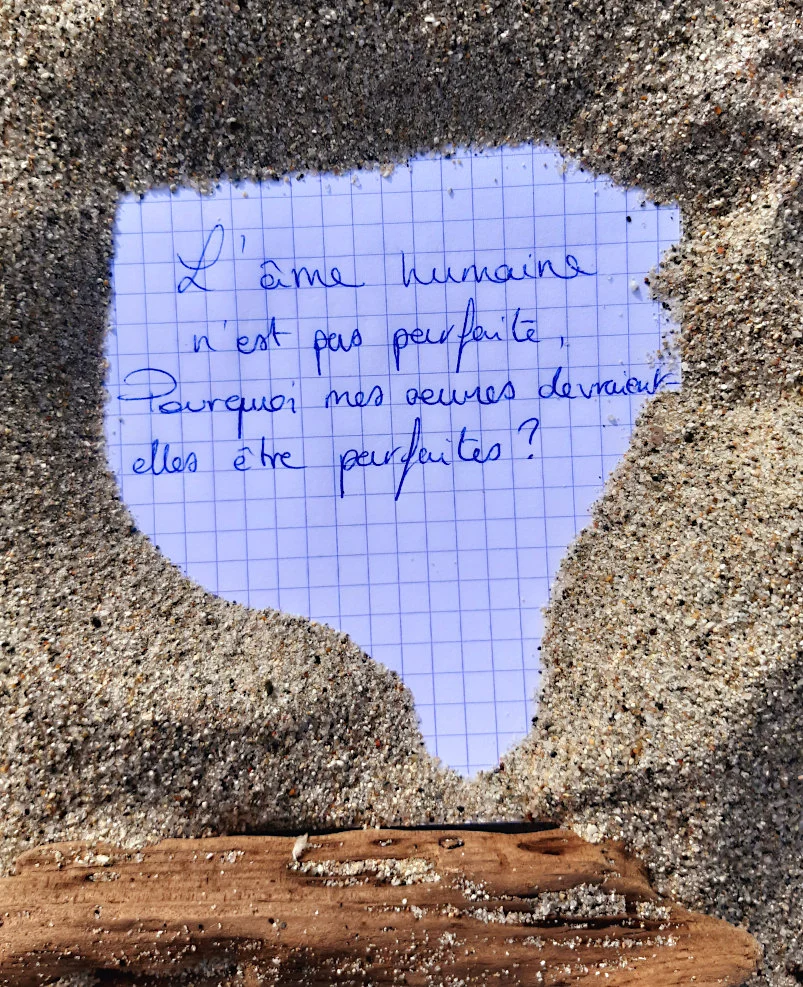 L'âme humaine
n'est pas parfaite,
Pourquoi mes oeuvres devraient
elles être parfaites ?